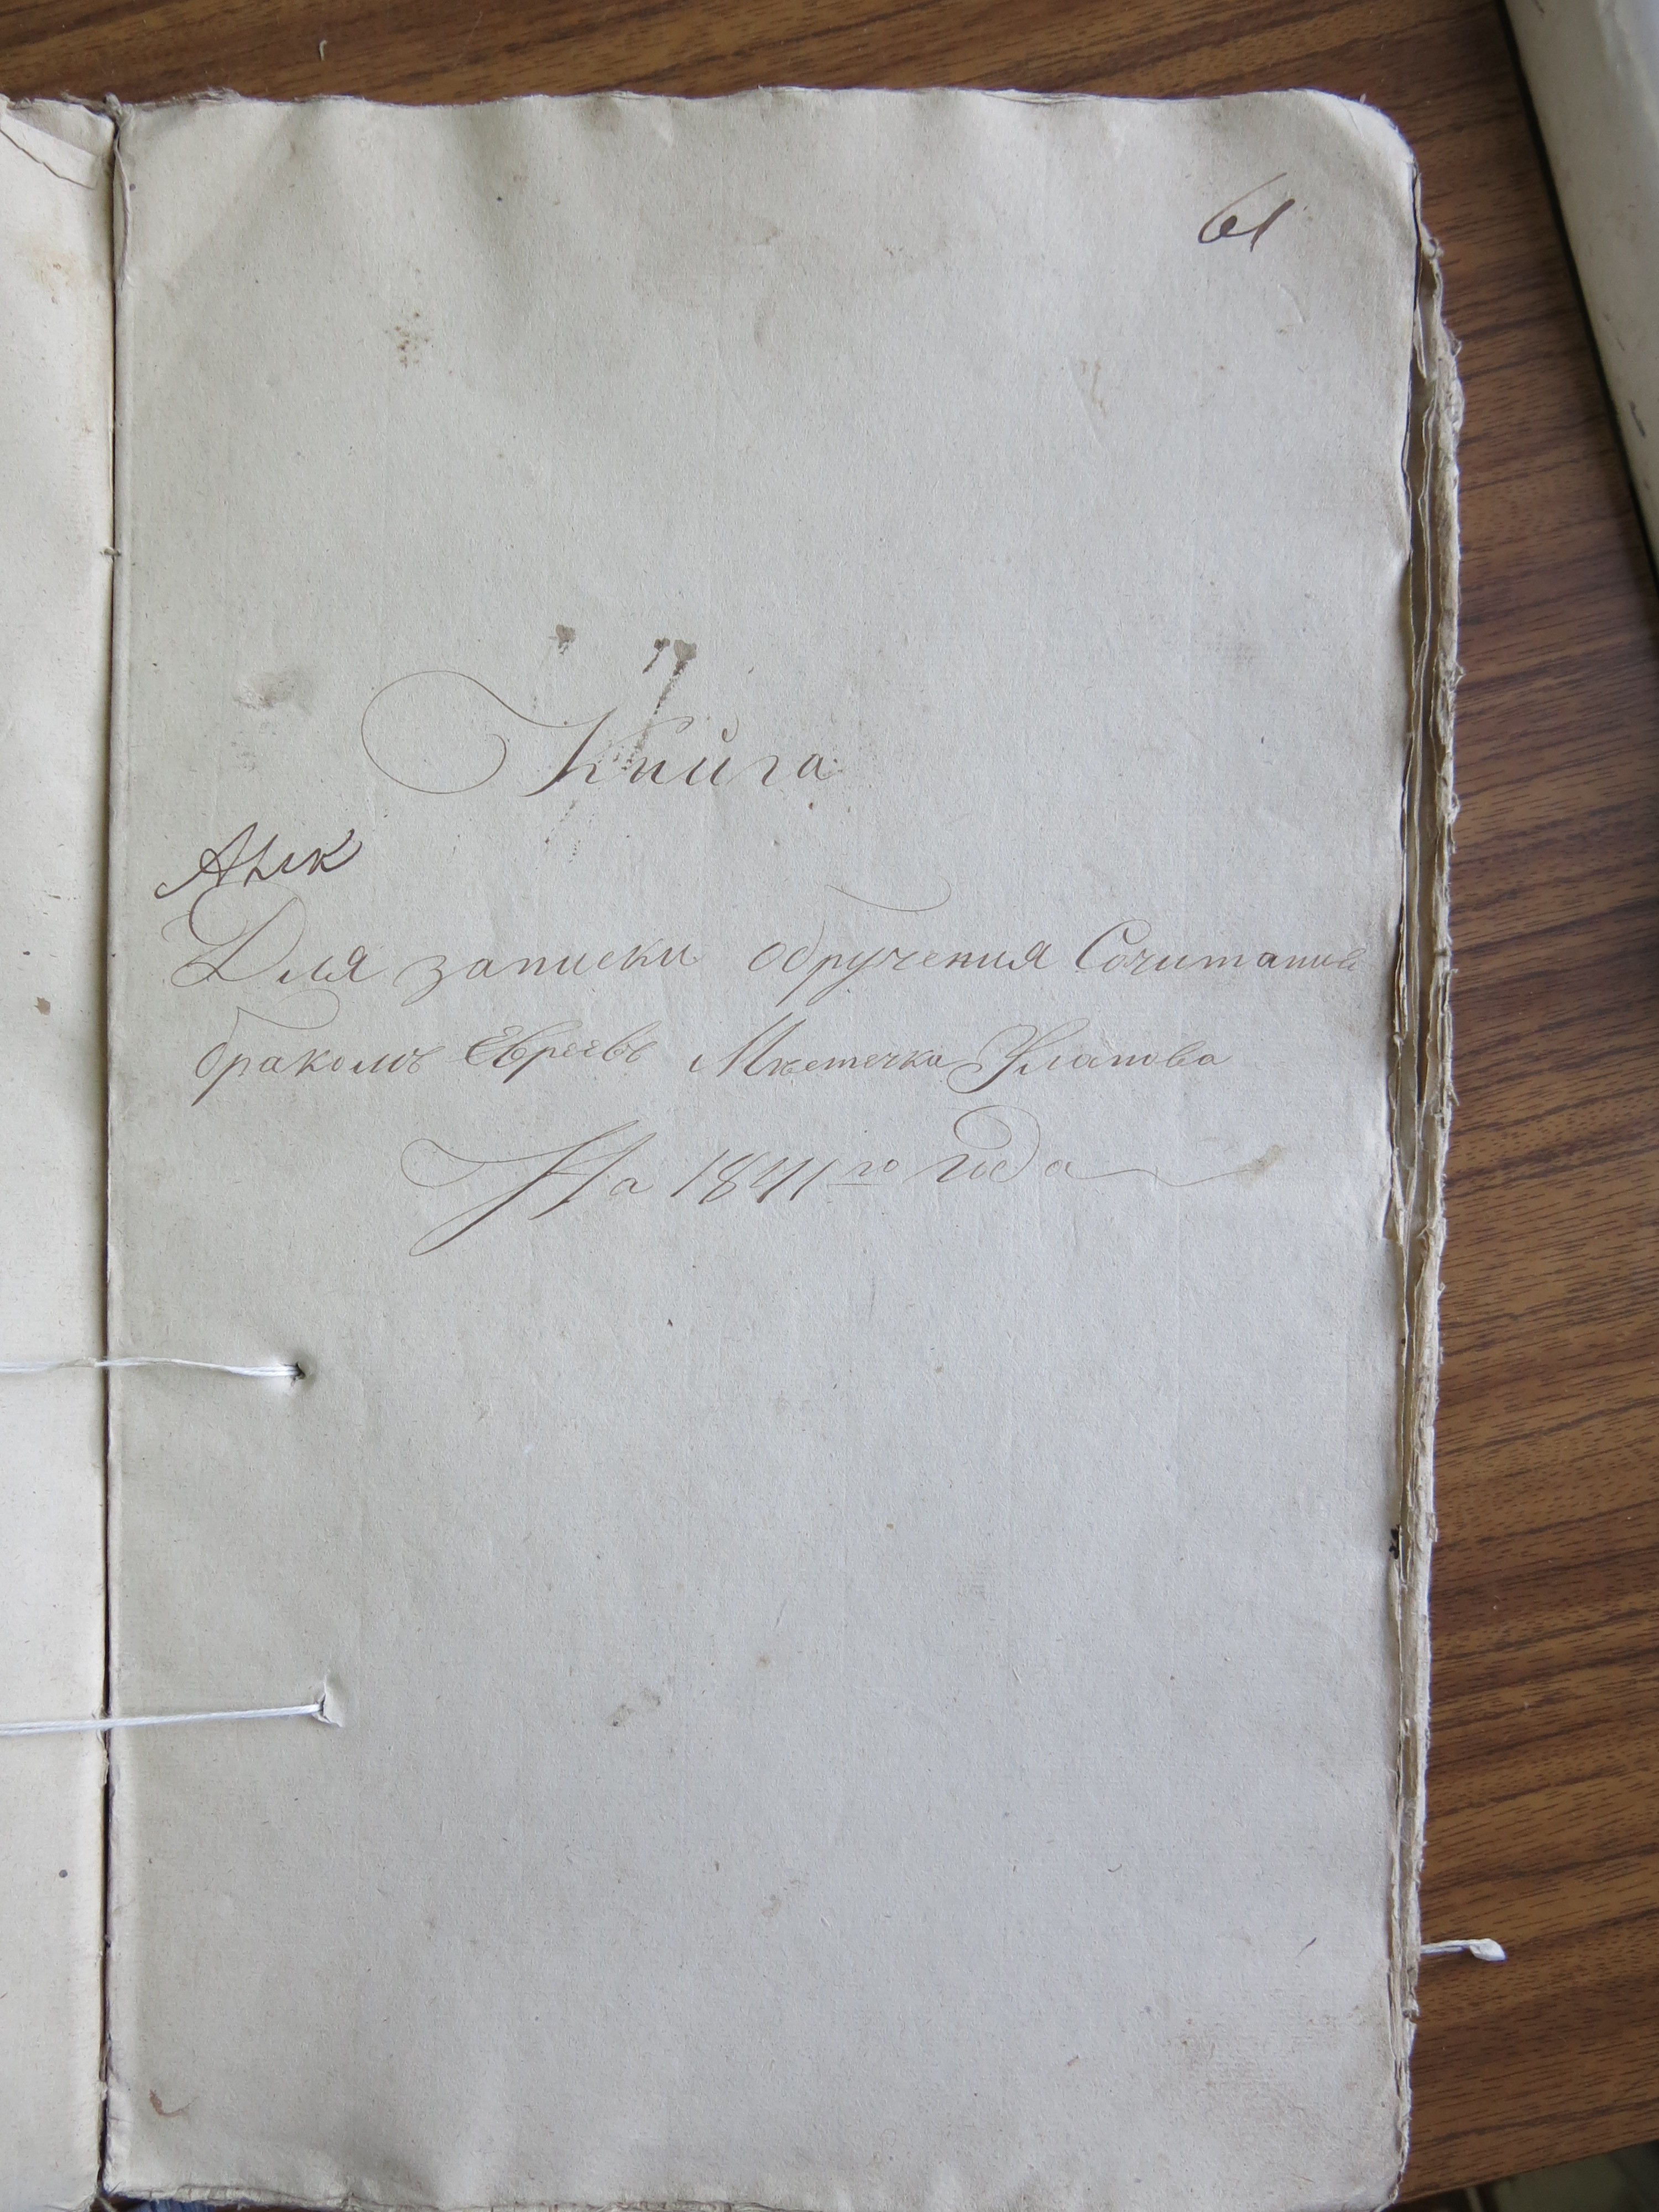 61
Книга
Для записки обручения Сочитания
бракомъ Евреевъ Мѣстечка Уланова
На 1841го года